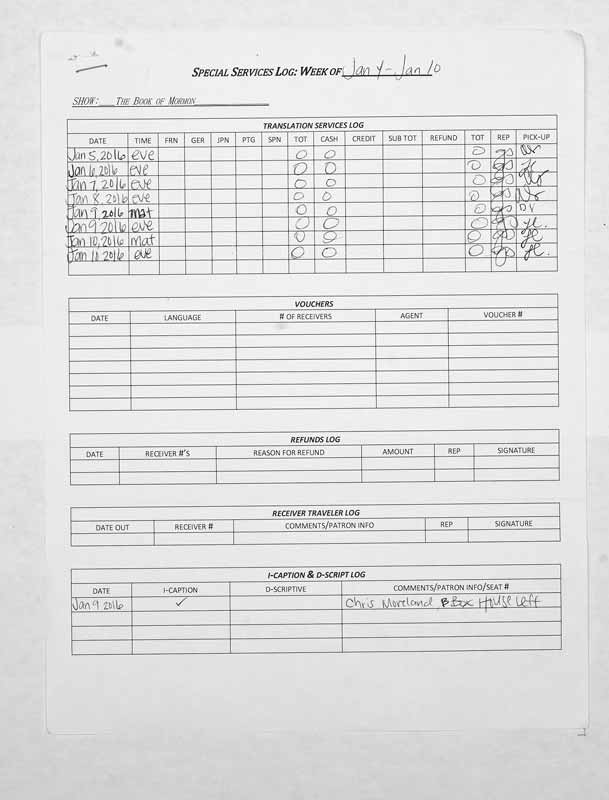 SPECIAL SERVICES LOG: WEEK OF Jan 4 - Jan 10
SHOW: THE BOOK OF MORMON
TRANSLATION SERVICES LOG
DATE TIME FRN GER JPN PTG SPN TOT CASH CREDIT SUB TOT REFUND TOT REP PICK-UP
Jan 5, 2016 eve 0 0 0
Jan 6, 2016 eve 0 0 0
Jan 7, 2016 eve 0 0 0
Jan 8, 2016 eve 0 0 0
Jan 9, 2016 mat 0 0 0 DV
Jan 9 2016 eve 0 0 0
Jan 10, 2016 mat 0 0 0
Jan 10 2016 eve 0 0 0
VOUCHERS
DATE LANGUAGE # OF RECEIVERS AGENT VOUCHER #
REFUNDS LOG
DATE RECEIVER #'S REASON FOR REFUND AMOUNT REP SIGNATURE
RECEIVER TRAVELER LOG
DATE OUT RECEIVER # COMMENTS/PATRON INFO REP SIGNATURE
I-CAPTION & D-SCRIPT LOG
DATE I-CAPTION D-SCRIPTIVE COMMENTS/PATRON INFO/SEAT #
Jan 9 2016 ✓ Chris Moreland, Box House Left